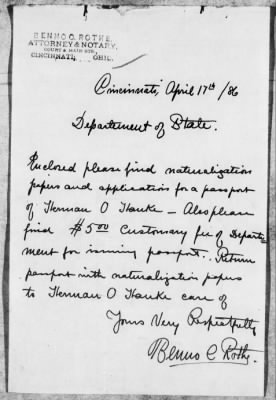 BENNO C. ROTHE,
ATTORNEY & NOTARY,
COURT & MAIN STS.
CINCINNATI, OHIO.
Cincinnati, April 17th /86
Departement of State.
Enclosed please find naturalization
papers and application for a passport
of Herman O Hanke – Also please
find $5.00 Customary fee of Departe
ment for issuing passport. Return
passport with naturalization papers
to Herman O Hanke care of
Yours Very Respectfully
Benno C. Rothe.